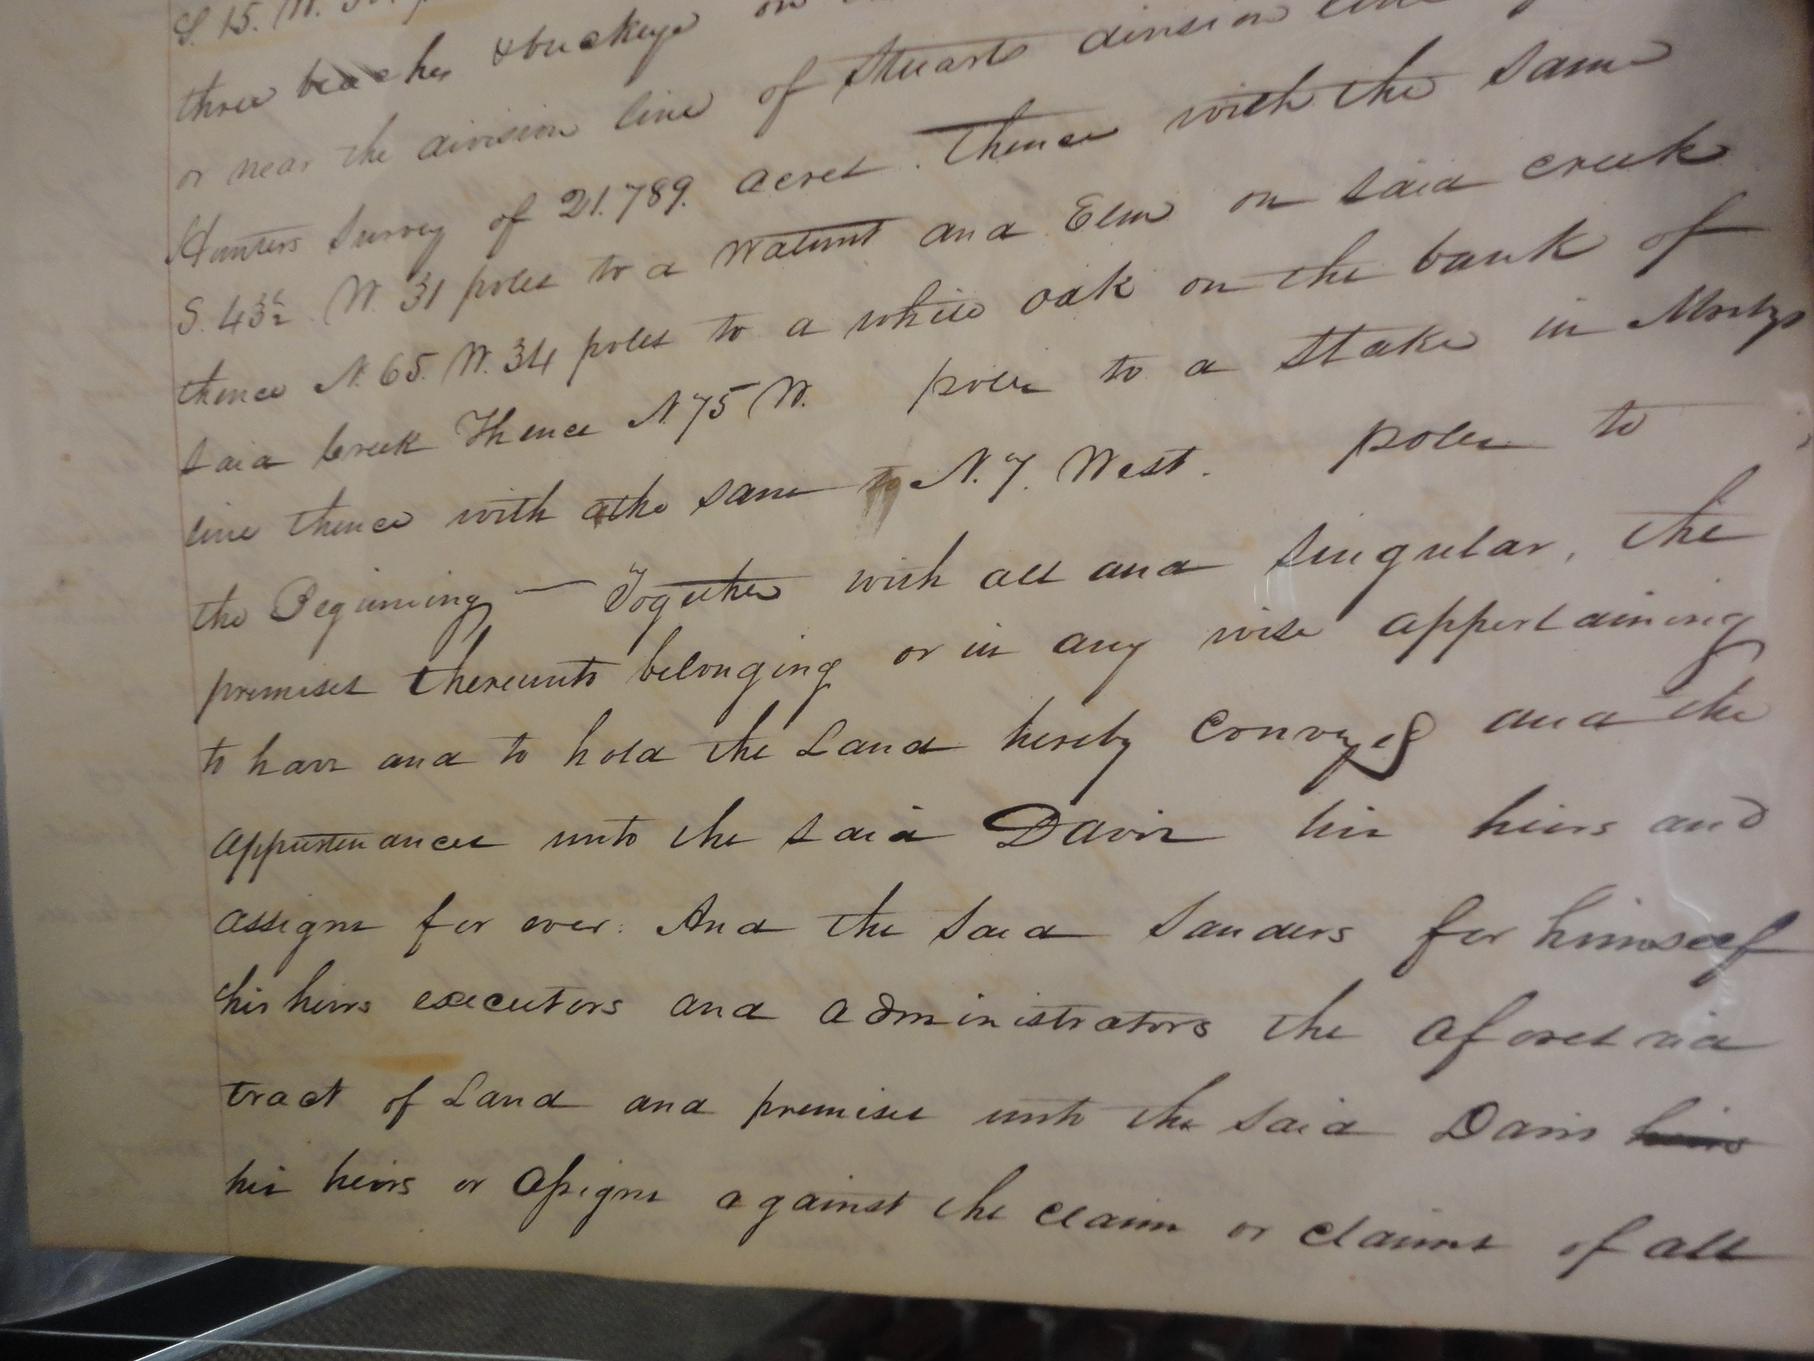 S. 15. W.
three beaches & buckeye on
or near the division line of Stuarts division line
Hunters Survey of 21.789. acres. Thence with the same
S. 43½ W. 31 poles to a Walnut and Elm on said creek
thence N. 65. W. 34 poles to a white oak on the bank of
said Creek Thence N 75 W. poles to a Stake in
line thence with the same to N. 7. West. poles to
the Beginning — Together with all and singular, the
premises thereunto belonging or in any wise appertaining
to have and to hold the Land hereby conveyed and the
appurtenances unto the said Davis his heirs and
assigns for ever. And the said Sanders for himself
his heirs executors and administrators the aforesaid
tract of Land and premises unto the said Davis heirs
his heirs or assigns against the claim or claims of all